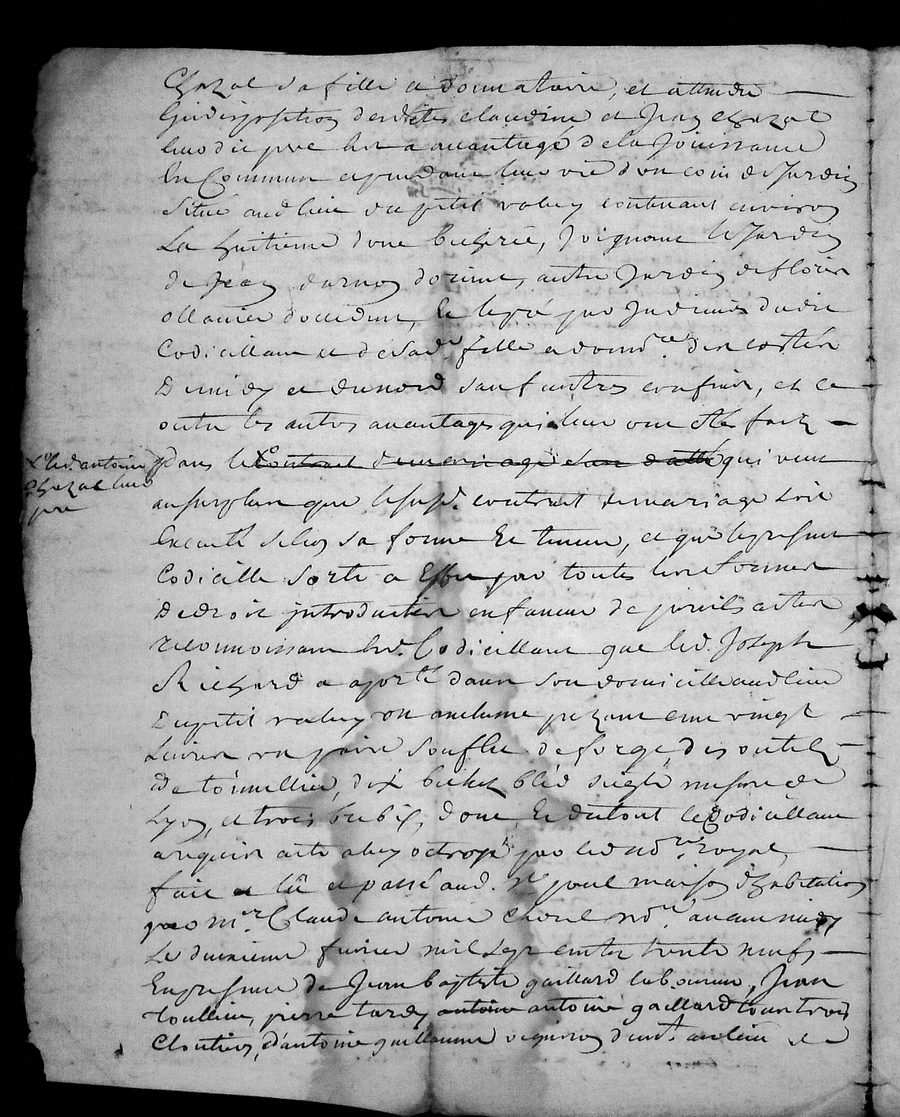 Chazal sa fille a donnataire, et attendu
lindisposition desdites claudine et Jean chazal
leur a avantagé de la Jouissance
En Commun et pendant leur vie d'un coin de Jardin
Situé audlieu du petit valuy contenant environ
La huitieme d'une bicherée, Joignant le Jardin
de Jean darnoy d'orient, autre Jardin de
ollanier d'occident, Et le pré par Indivis dudit
Codicillant et de Sad. fille a donn. des costés
De midy et du nord sauf autres confins, et ce
outre les autres avantages qui leur ont été faits
Led. antoine
chazal leur
pere
dans le Contrat de mariage qui veut
au surplus que le susd. contrat de mariage soit
Executé selon sa forme Et teneur, et que le present
Codicille sorte a Effet par toutes formes
De droit introduites en faveur de
reconnoissant led. Codicillant que led. Joseph
Richard a aporté dans son domicille audlieu
Du petit valuy un anclume pezant cent vingt
Livres un paire soufflet de forge, des outils
De tonnellier, dix bichets bléd seigle mesure de
Lyon, et trois brebis, dont Et du tout le Codicillant
a requis acte a luy octroyé par led no.re royal,
fait lû et passé aud. maison d'habitation
par m.re Claude antoine chorel no.re avant midy
Le deuxieme fevrier mil sept cents trente neuf
En presence de Jean baptiste gaillard laboureur, Jean
toullieu, pierre tardy antoine antoine gaillard tous trois
Cloutiers, d'antoine guillaume vigneron d.